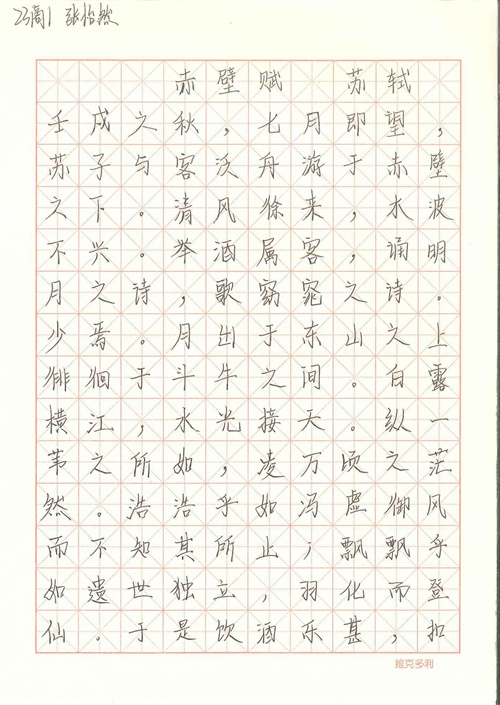 23商1 张怡然
赤壁赋 苏轼
壬戌之秋,七月即望,
苏子与客泛舟游于赤壁
之下。清风徐来,水波
不兴。举酒属客,诵明
月之诗,歌窈窕之诗。
少焉。月出于东山之上
徘徊于斗牛之间。白露
横江,水光接天。纵一
苇之所如,凌万顷之茫
然。浩浩乎如冯虚御风
而不知其所止;飘飘乎
如遗世独立,羽化而登
仙。于是饮酒乐甚,扣
维克多利